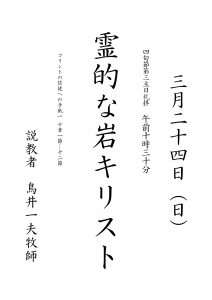 三月二十四日（日）
四旬節第三主日礼拝　午前十時三十分
霊的な岩キリスト
コリントの信徒への手紙一　十章一節－十三節
説教者　鳥井一夫牧師